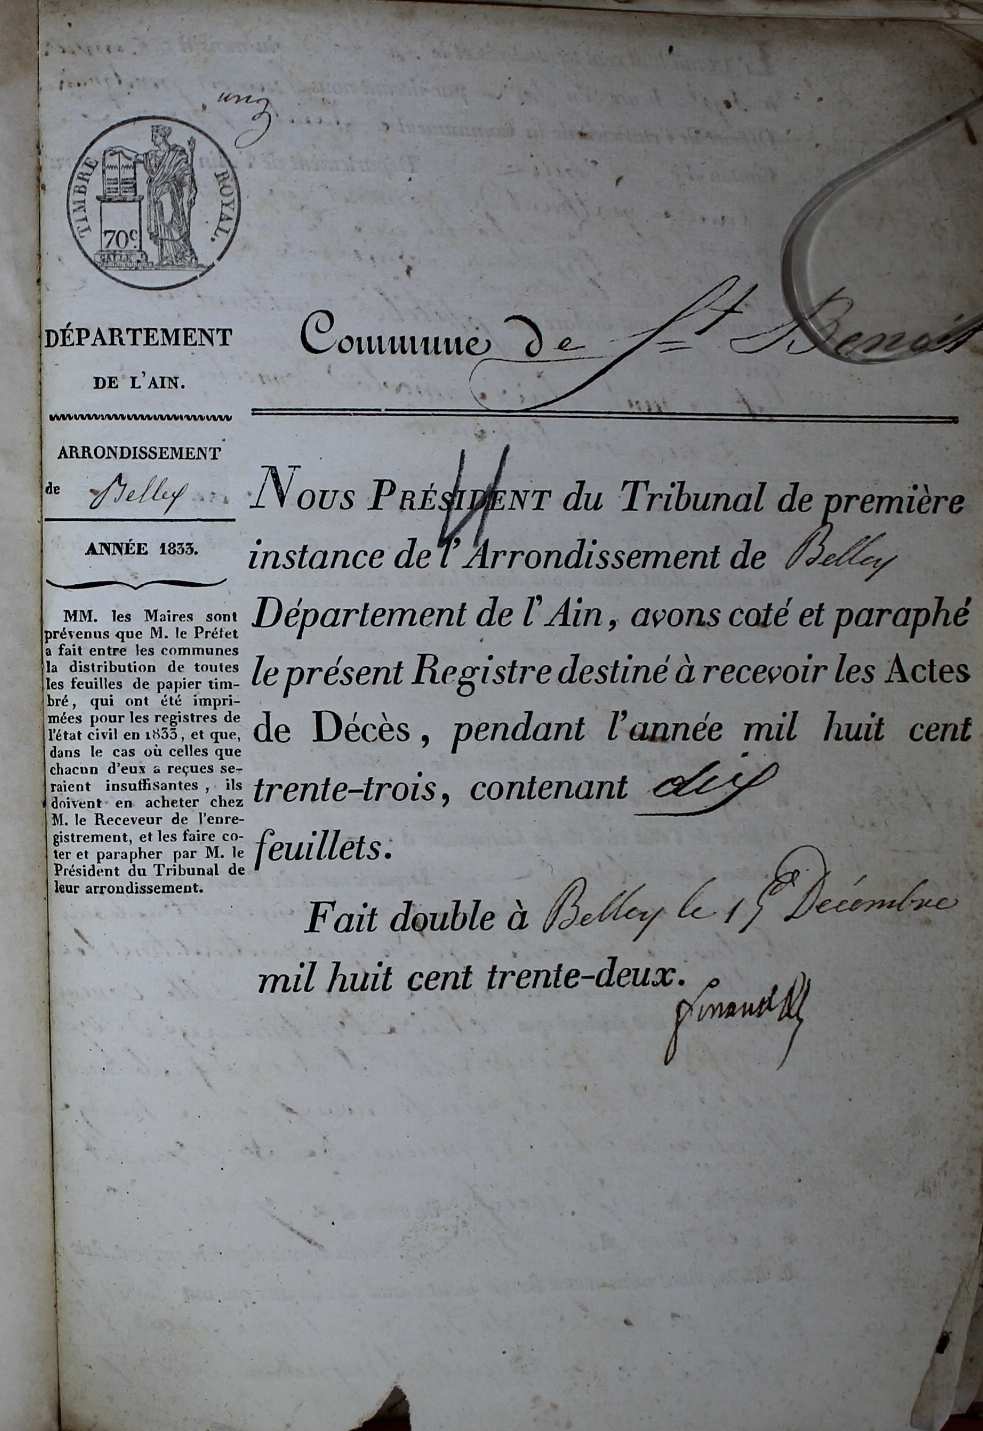 TIMBRE ROYAL.
70c
DÉPARTEMENT
DE L'AIN.
ARRONDISSEMENT
de Belley
ANNÉE 1833.
MM. les Maires sont
prévenus que M. le Préfet
a fait entre les communes
la distribution de toutes
les feuilles de papier tim-
bré, qui ont été impri-
mées pour les registres de
l'état civil en 1833, et que,
dans le cas où celles que
chacun d'eux a reçues se-
raient insuffisantes, ils
doivent en acheter chez
M. le Receveur de l'enre-
gistrement, et les faire co-
ter et parapher par M. le
Président du Tribunal de
leur arrondissement.
Commune de St Benoit
NOUS PRÉSIDENT du Tribunal de première
instance de l'Arrondissement de Belley
Département de l'Ain, avons coté et paraphé
le présent Registre destiné à recevoir les Actes
de Décès, pendant l'année mil huit cent
trente-trois, contenant dix
feuillets.
Fait double à Belley le Décembre
mil huit cent trente-deux.